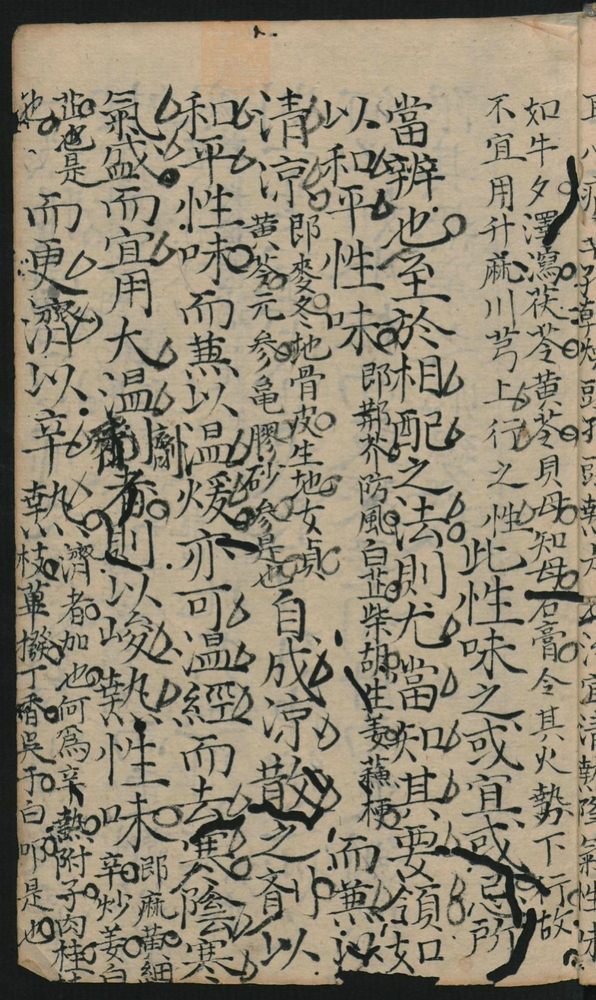 如牛夕澤瀉茯苓黄芩貝母知母石膏令其火勢下行故
不宜用升麻川芎上行之性此性味之或宜或忌所
當辨也至於相配之法則尤當知其要領如
以和平性味即荆芥防風白芷柴胡生姜蘇梗而兼以
清凉即麥冬地骨皮生地女貞黄芩元參龜膠砂參是也自成凉散之齊以
和平性味而兼以温煖亦可温經而去寒陰寒
氣盛而宜用大温劑者則以峻熱性味即麻黄細辛炒姜白
芷也是而更濟以辛熱濟者加也何爲辛熱附子肉桂
枝蓽撥丁香吳于白叩是也